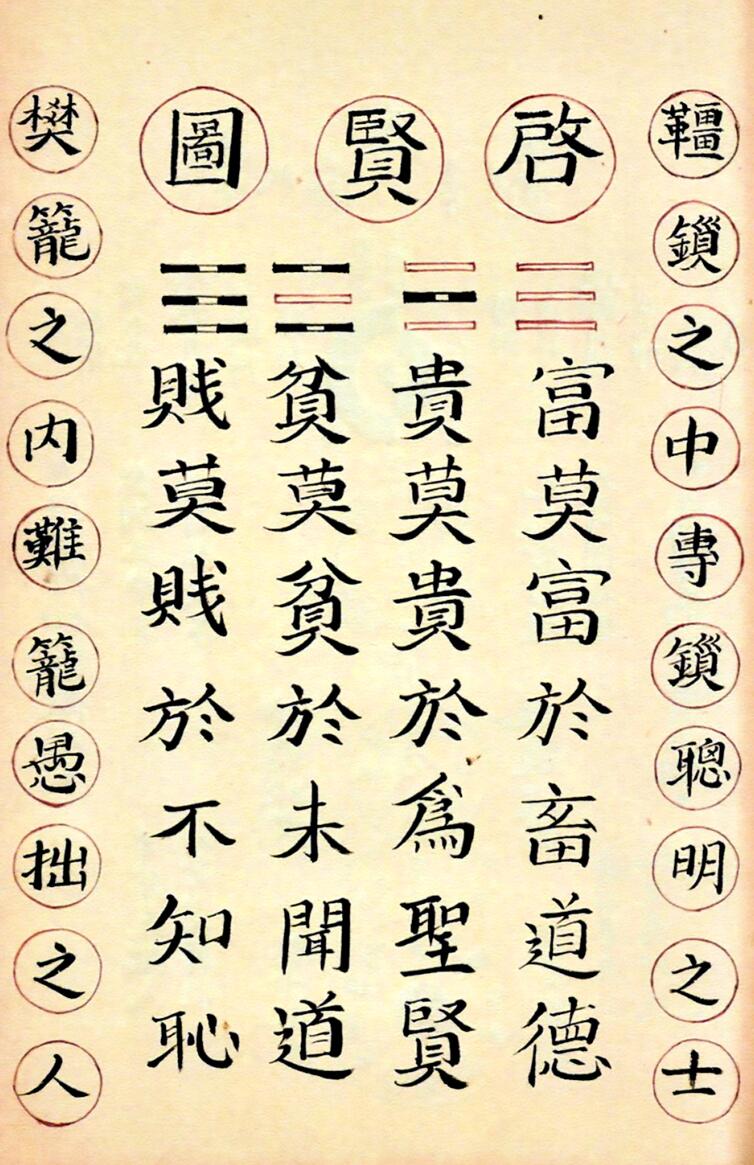 韁鎖之中專鎖聰明之士
啓賢圖
富莫富於畜道德
貴莫貴於爲聖賢
貧莫貧於未聞道
賎莫賎於不知恥
樊籠之內難籠愚拙之人